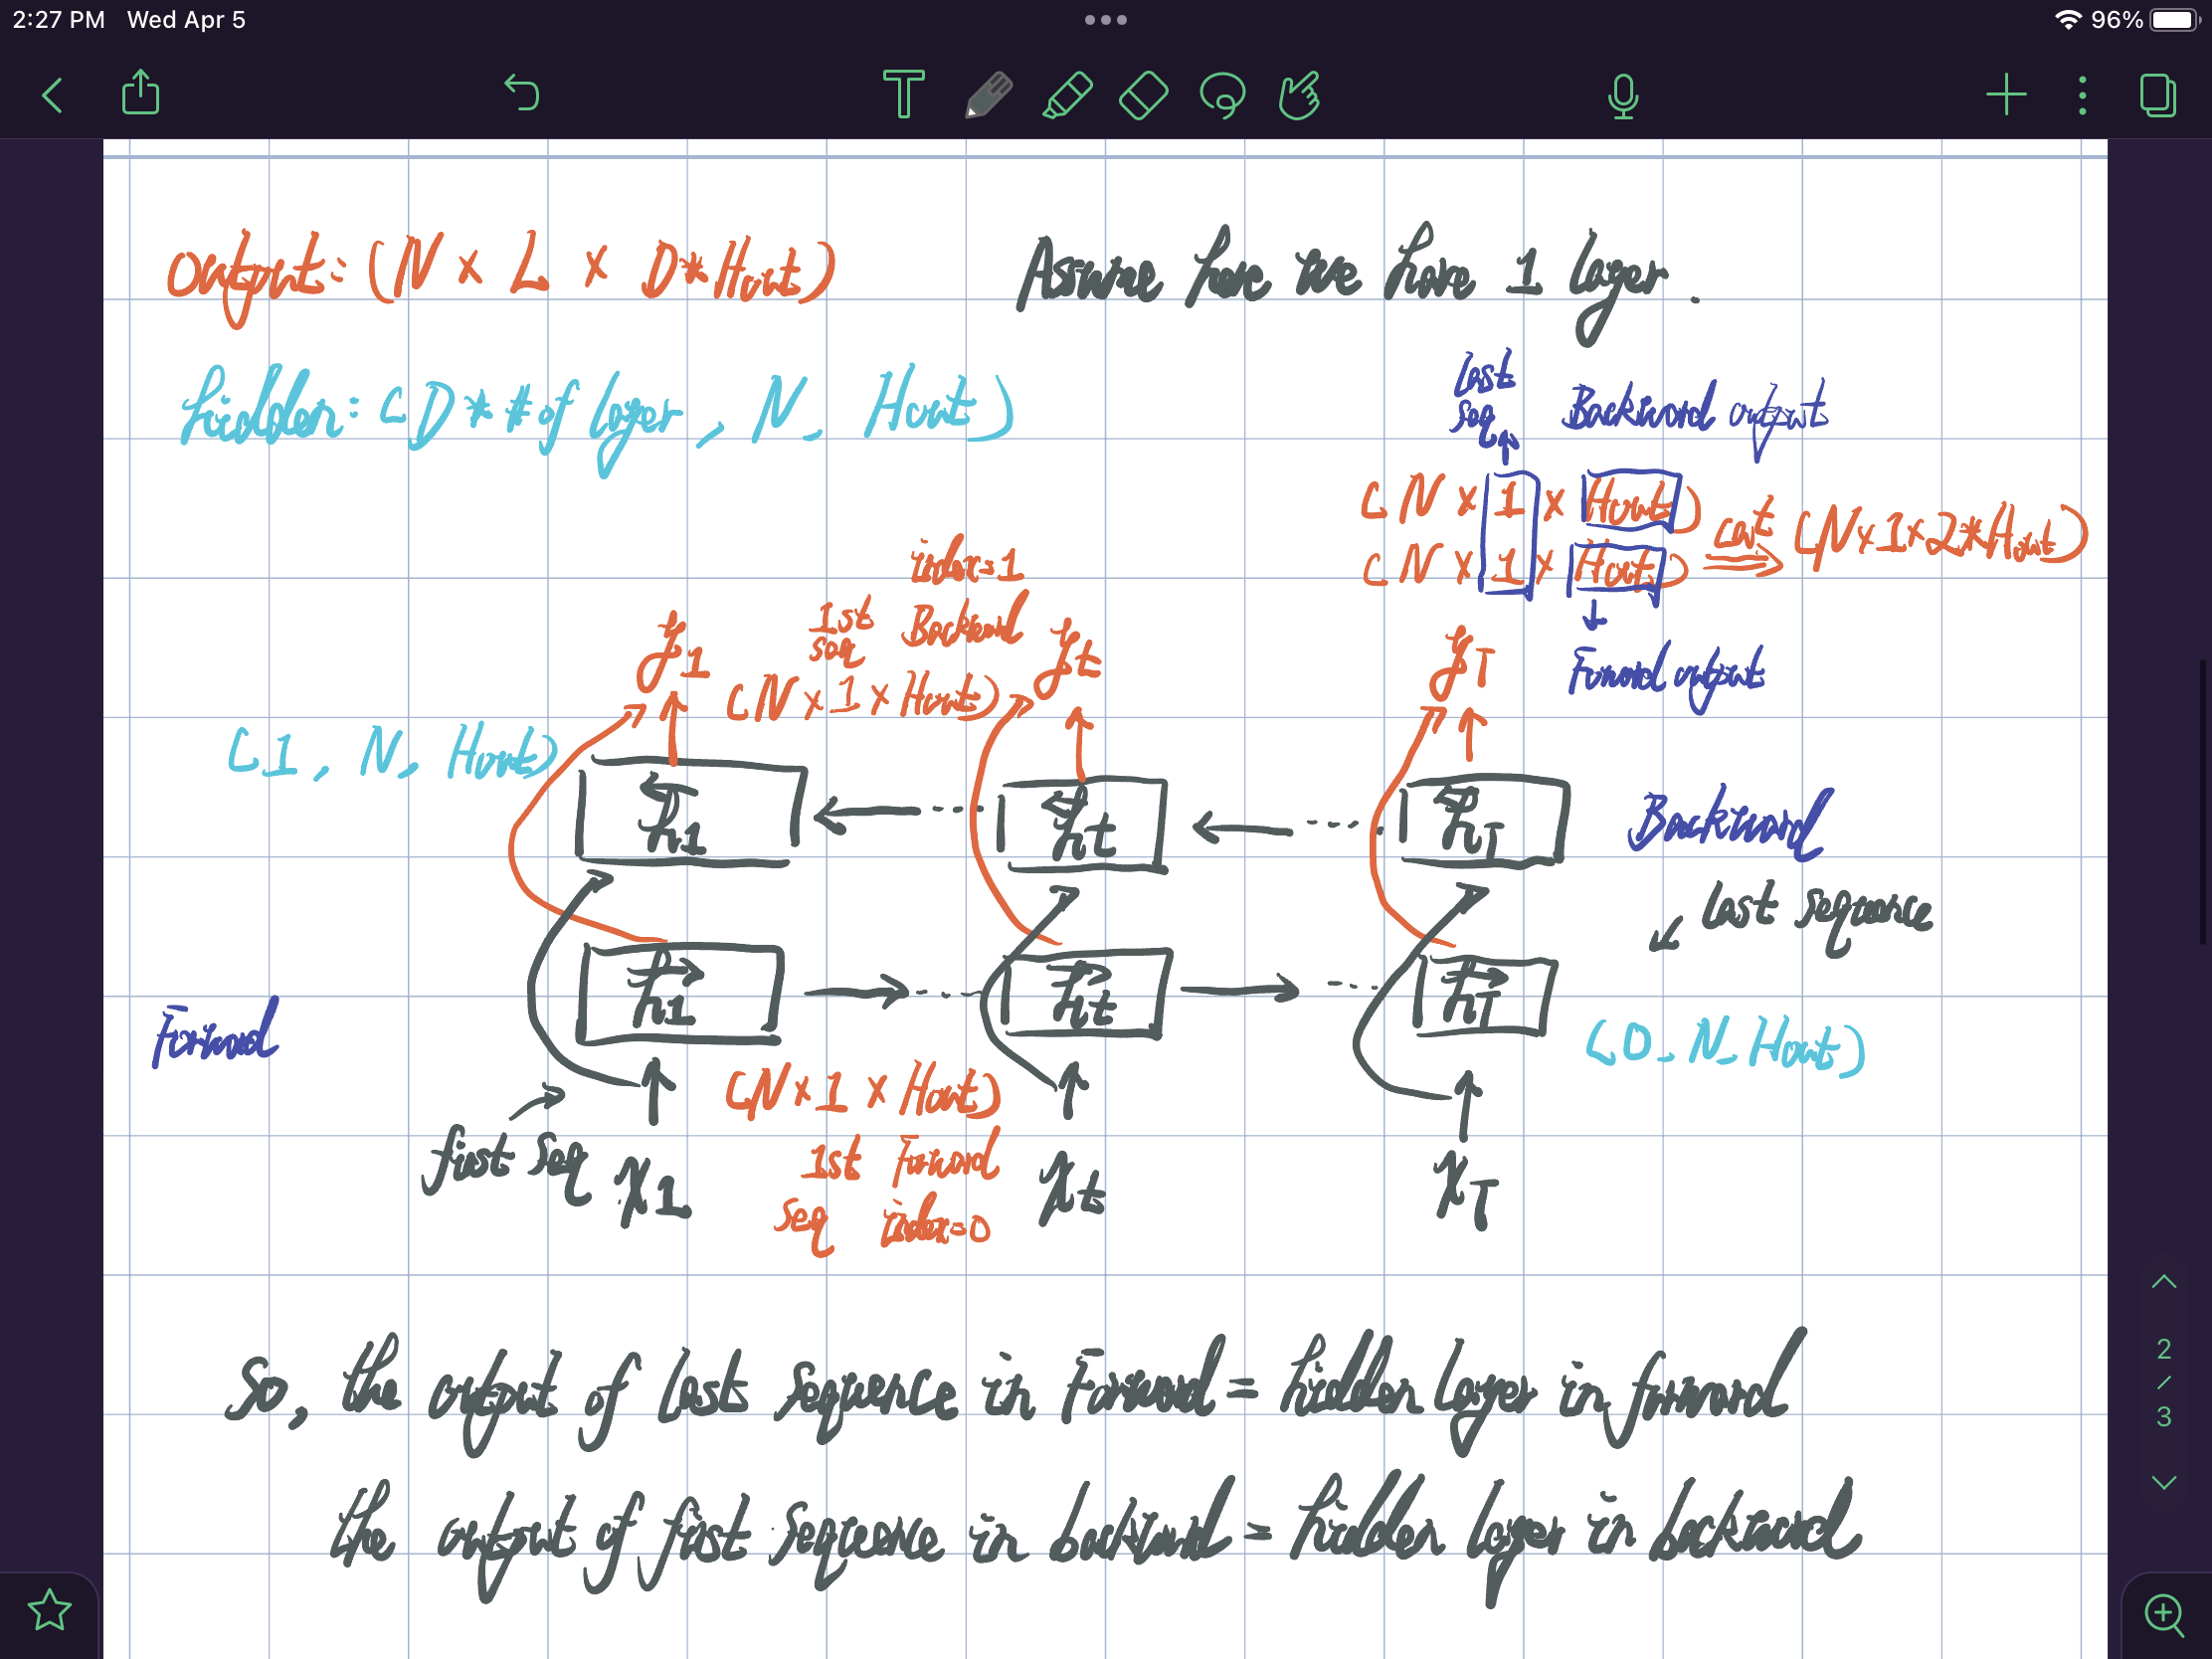 2:27 PM Wed Apr 5
96%
output: (N x L x D*Hout)
Assume here we have 1 layer.
hidden: (D * # of layer, N, Hout)
last
seq
Backward output
(N x 1 x Hout)
(N x 1 x Hout)
cat
(N x 1 x 2*Hout)
Forward output
index=1
1st
seq
Backward
(N x 1 x Hout)
y1
yt
yT
(1, N, Hout)
h1
ht
hT
Backward
last sequence
h1
ht
hT
(0, N, Hout)
Forward
first seq
x1
(N x 1 x Hout)
1st Forward
seq index=0
xt
xT
So, the output of last sequence in Forward = hidden layer in forward
the output of first sequence in backward = hidden layer in backward
2
/
3